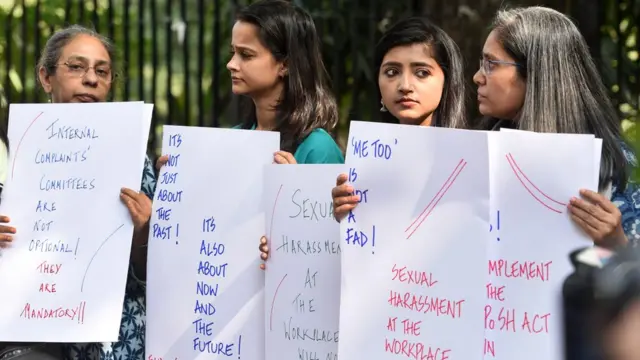 INTERNAL
COMPLAINTS'
COMMITTEES
ARE
NOT
OPTIONAL!
THEY
ARE
MANDATORY!!
ITS
NOT
JUST
ABOUT
THE
PAST!
ITS
ALSO
ABOUT
NOW
AND
THE
FUTURE!
SEXUAL
HARASSMENT
AT
THE
WORKPLACE
WILL
'ME TOO'
IS
NOT
A
FAD!
SEXUAL
HARASSMENT
AT THE
WORKPLACE
!
IMPLEMENT
THE
POSH ACT
IN